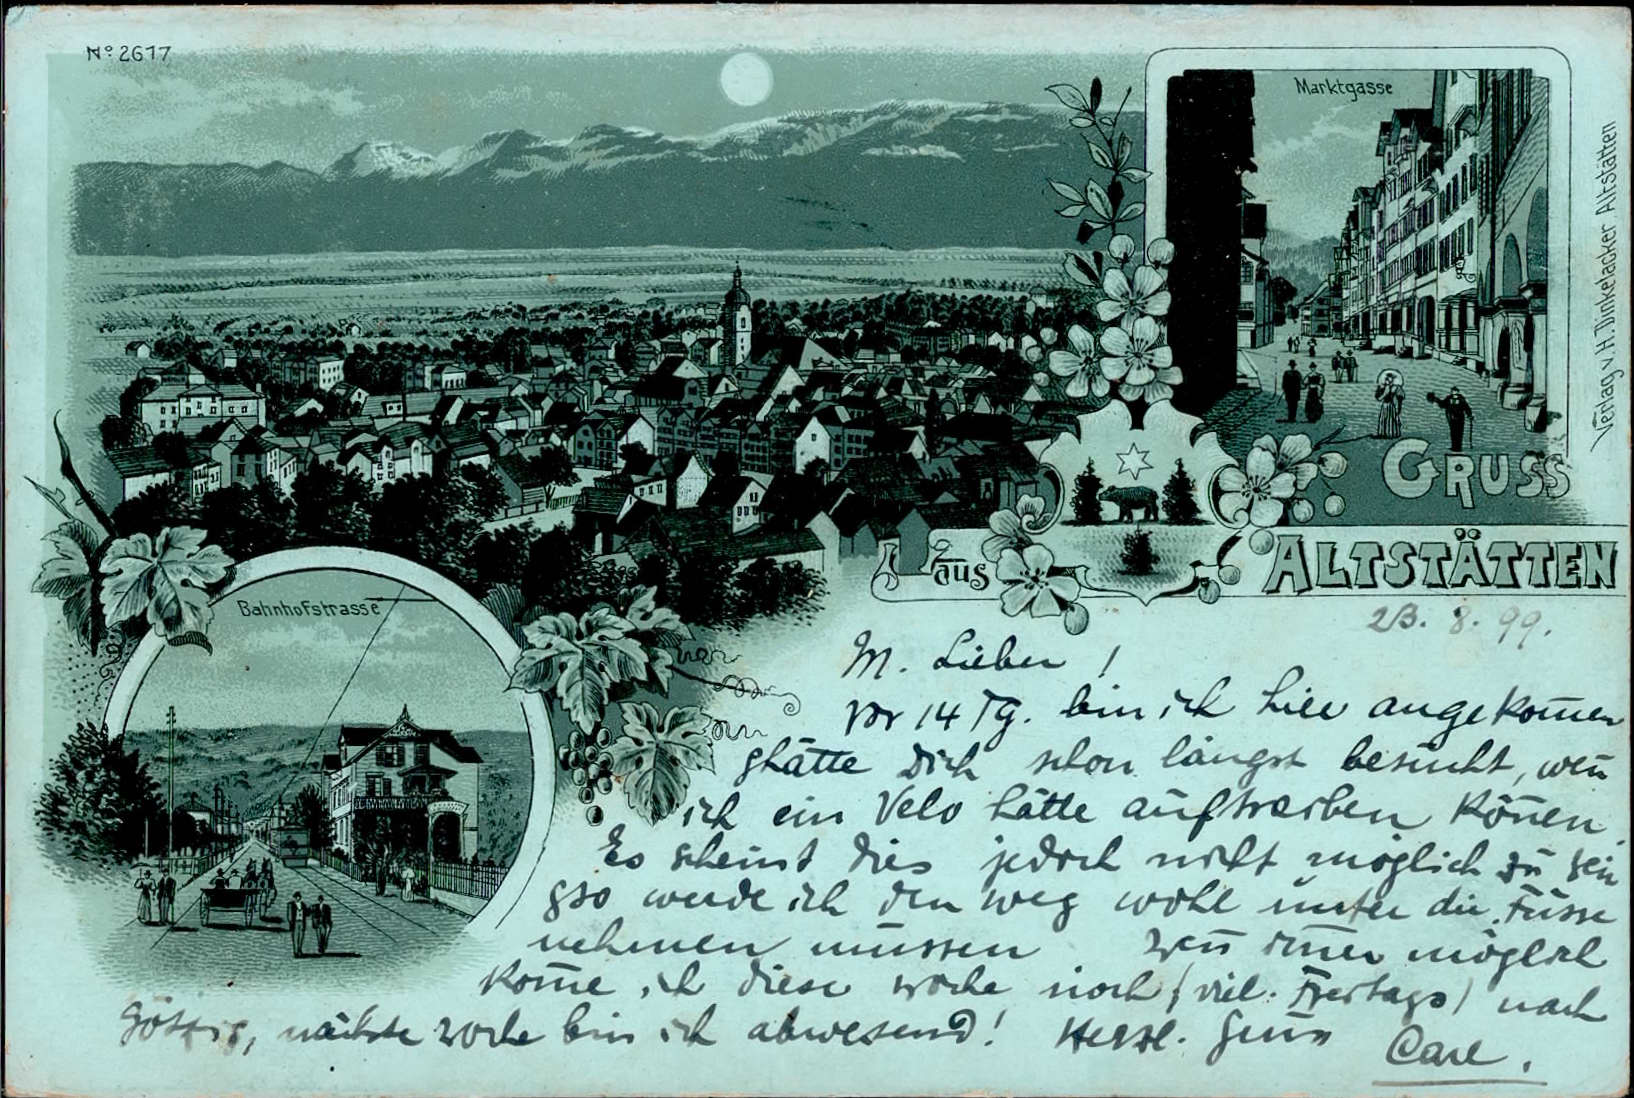 No 2677
Marktgasse
Verlag v. H. Dinkelacker Altstätten
GRUSS
aus ALTSTÄTTEN
Bahnhofstrasse
23. 8. 99.
M. Lieber !
Vor 14 Tg. bin ich hier angekom̅en
& hätte Dich schon längst besucht, wen̅
ich ein Velo hätte auftreiben kön̅en.
Es scheint dies jedoch nicht möglich zu sein
& so werde ich den Weg wohl unter die Füsse
nehmen müssen Wen̅ im̅er möglich
kom̅e ich diese Woche noch (viel. Freitags) nach
Göttig, nächste Woche bin ich abwesend! Herzl. Gruss
Carl.